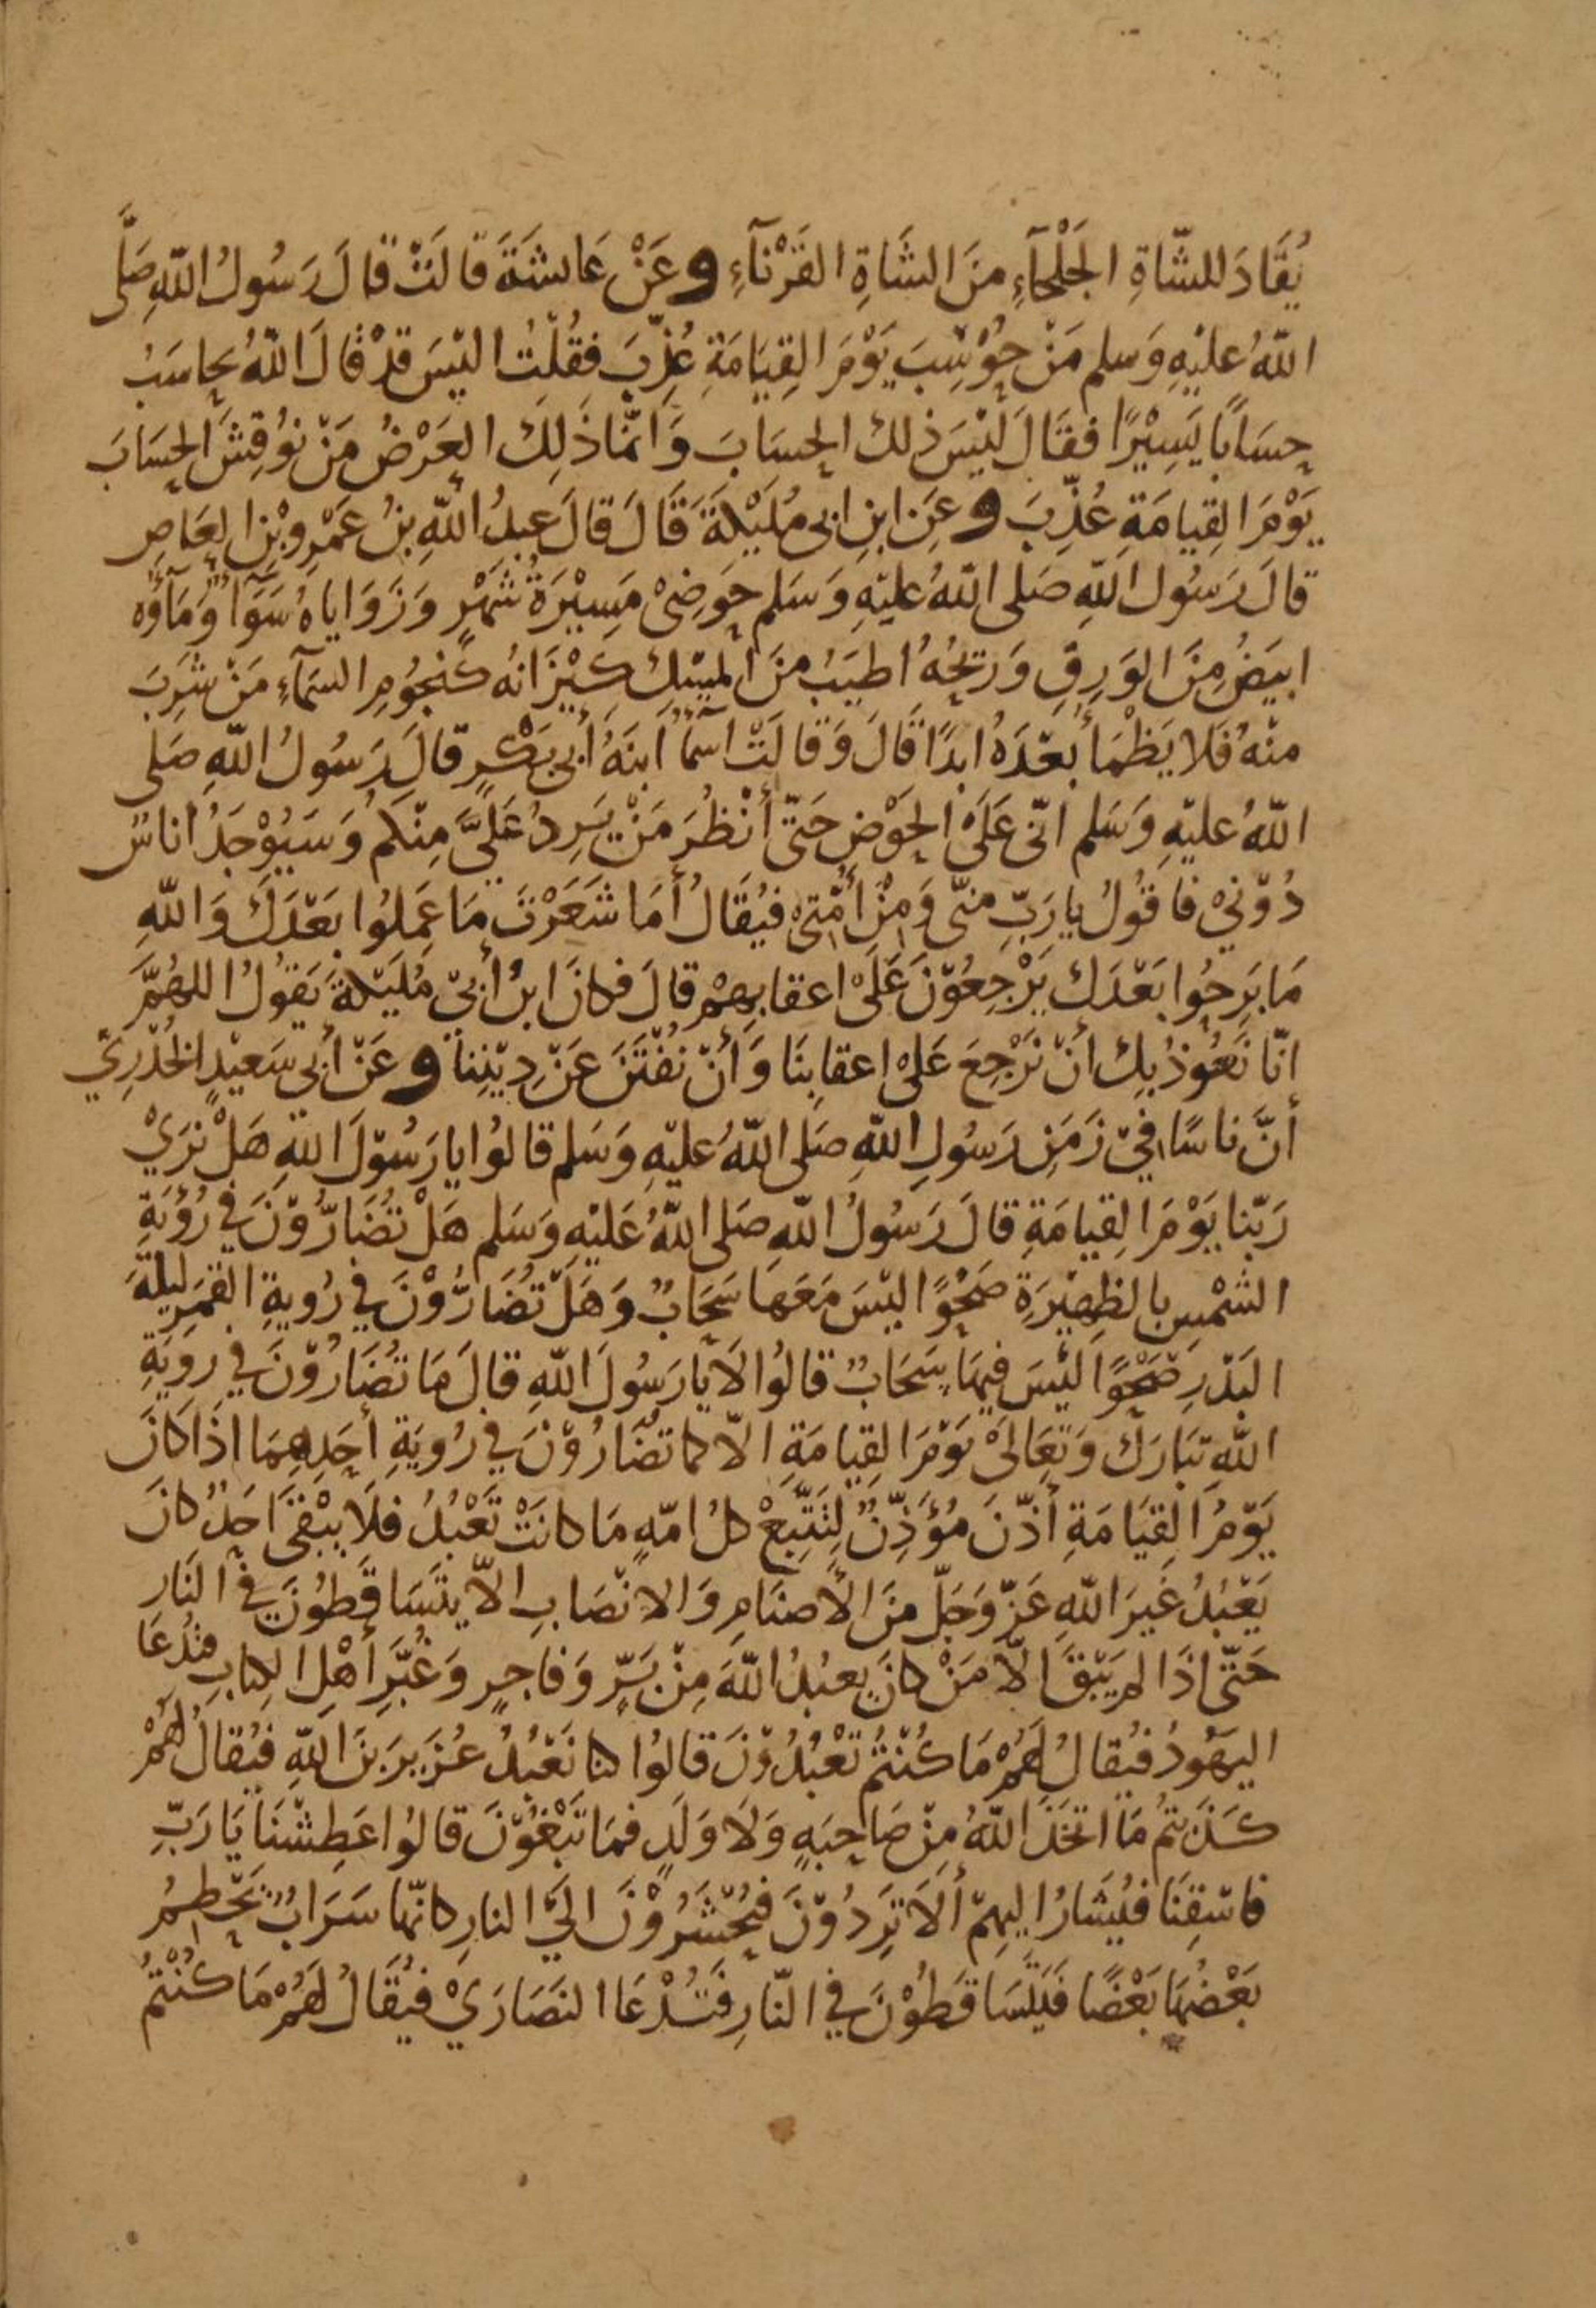 يُقَادَ للشّاةِ الجَلْحَآءِ مِنَ الشَاةِ القَرْنَآءِ وعَنْ عَائشَةَ قَالَتْ قَالَ رَسُولُ اللّهِ صَلَّى
اللّهُ عليْهِ وَسلم مَنْ حُوْسِبَ يَوْمَ القِيَامَةِ عُذِّبَ فقُلْتُ اليْسَ قدْ قَالَ اللّهُ يحاسَبُ
حِسَابًا يَسِيْرًا فقَالَ ليْسَ ذلك الحِسَابَ وَانّمَا ذَلِكَ العَرْضُ مَنْ نوُقِشَ الحِسَابَ
يَوْمَ القِيامَةِ عُذِّبَ وعَنِ ابنِ ابى مُلَيْكَةَ قَالَ قالَ عبدُ اللّهِ بنُ عَمْرِو بْنِ العَاصِ
قالَ رَسُول اللّهِ صَلى اللّهُ عليْهِ وَسَلم حَوضِىْ مَسِيْرَةُ شَهْرٍ وَزَوَاياهُ سَوَآءٌ وَمَآؤُه
ابيَضُ مِنَ الوَرِقِ وَرِيحُهُ اطيَبُ مِنَ المِسْكِ كِيْزَانُه كَنجُوُمِ السَمآءِ مَنْ شَرِبَ
منْهُ فَلا يَظْمَأُ بعْدَهُ ابدًا قَالَ وَقَالَتْ اسَمآءُ ابنَةُ أبى بَكْرٍ قالَ رَسُولُ اللّهِ صَلى
اللّهُ عليْهِ وَسَلم انّى عَلَىْ الحَوْضِ حَتّى أنْظُرَ مَنْ يَرِدُ عَلَىَّ مِنْكُم وَسَيُوْجَدُ اناسٌ
دُوْنِيْ فَاقُولُ يا رَبِّ منّى وَمِنْ أُمّتِىْ فيُقَالُ أمَا شَعَرْتَ مَا عَمِلوُا بَعْدَكَ وَاللّهِ
مَا بَرِحُوا بَعْدَكَ يَرْجِعُوْنَ عَلَىْ اعقابِهِمْ قالَ فكانَ ابنُ أبىْ مُلَيْكَةَ يَقوُلُ اللهُمَّ
انّا نَعُوْذُ بِكَ أنْ نَرْجِعَ عَلىْ اعقابِنَا وَأنْ نُفْتَنَ عَنْ دِيْنِنَا وعَنْ أبى سَعيْدٍ الخُدْرِيّ
أنَّ نَاسًا فيْ زَمَنِ رَسُولِ اللّهِ صَلى اللّهُ عليْهِ وَسَلم قالوُا يا رَسُوْلَ اللّهِ هَلْ نرَيْ
رَبّنا يَوْمَ القِيامَةِ قالَ رَسُولُ اللّهِ صَلى اللّهُ عَليْهِ وَسَلم هَلْ تُضَارُّوْنَ فِي رُؤيَةِ
الشَمْسِ بالظهِيْرَةِ صَحْوًا ليْسَ مَعَهَا سَحَابٌ وَهَلْ تُضَارُّوْنَ فِي رُويةِ القمَرِ ليلَةَ
البَدْرِ صَحْوًا ليْسَ فِيهَا سَحَابٌ قالوُا لاَ يا رَسُولَ اللّهِ قالَ مَا تُضَارُوْنَ فِي رويَةِ
اللّهِ تبَارَكَ وَتعَالىْ يَوْمَ القِيامَةِ الاّ كما تضَارُوْنَ فِي رُويَةِ أحَدِهِمَا اذَا كَانَ
يَوْمُ القِيَامَةِ أذّنَ مُؤَذِّنٌ لِتَتّبَعْ كلُ امّهٍ مَا كانَتْ تَعْبُدُ فلاَ يبْقىَ احَدٌ كانَ
يَعْبُدُ غَيرَ اللّهِ عَزّ وَجَلّ مِنَ الأصنَامِ وَالانْصَابِ الاّ يتَسَاقَطوُنَ فِي النَار
حَتّى اذَا لم يَبْقَ الاّ مَنْ كانَ يعبُدُ اللّهَ مِنْ بَرٍّ وَفاجِرٍ وَغُبَّرِ أهْلِ الكِتابِ فتُدْعَا
اليَهُودُ فيُقالُ لَهُمْ مَا كُنْتُم تَعْبُدُوْنَ قالوُا كنا نَعْبُدُ عُزَيرَ بنَ اللّهِ فيُقالُ لَهُمْ
كَذَبتُم مَا اتخَذَ اللّهُ مِنْ صَاحِبَهٍ وَلاَ وَلَدٍ فَمَا تَبْغُوْنَ قالوُا عَطِشْنَا يَا رَبِّ
فاسْقِنَا فيُشَارُ اليهِمْ ألاَ تَرِدُوْنَ فيُحْشَرُوْنَ الَيْ النارِ كانّها سَرَابٌ يَحْطِمُ
بَعْضُهَا بَعْضًا فَيَتَسَاقَطُوْنَ فِي النّارِ فَتُدْعَا النَصَارَيْ فيُقَالُ لَهُمْ مَا كُنْتُمْ